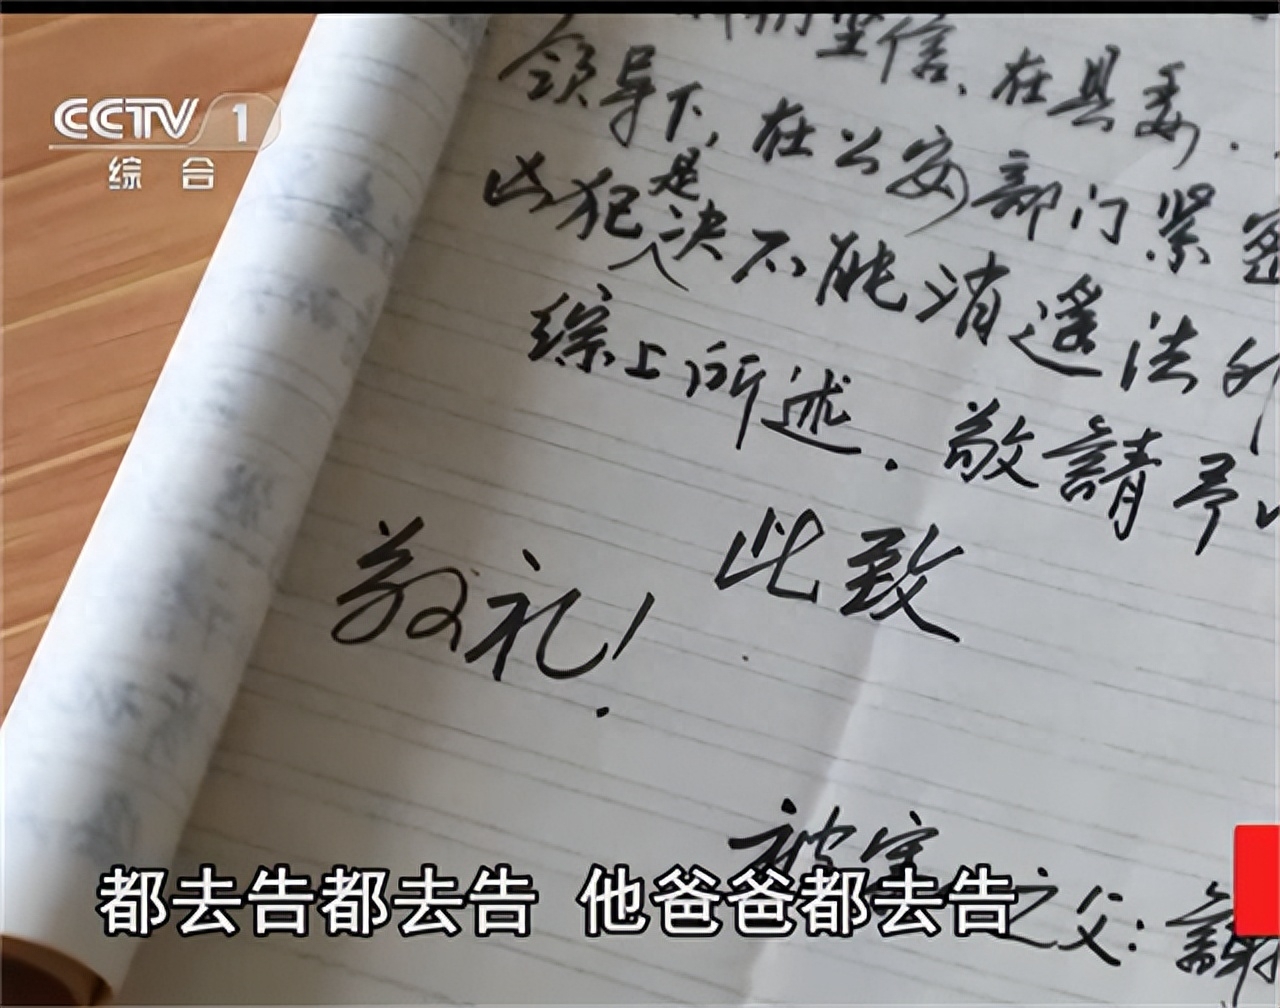 坚信、在县委.
CCTV 1
综 合
领导下,在公安部门紧密
凶犯是决不能消遥法外
综上所述.敬請予
此致
敬礼!
被害
之父:謝
都去告都去告 他爸爸都去告